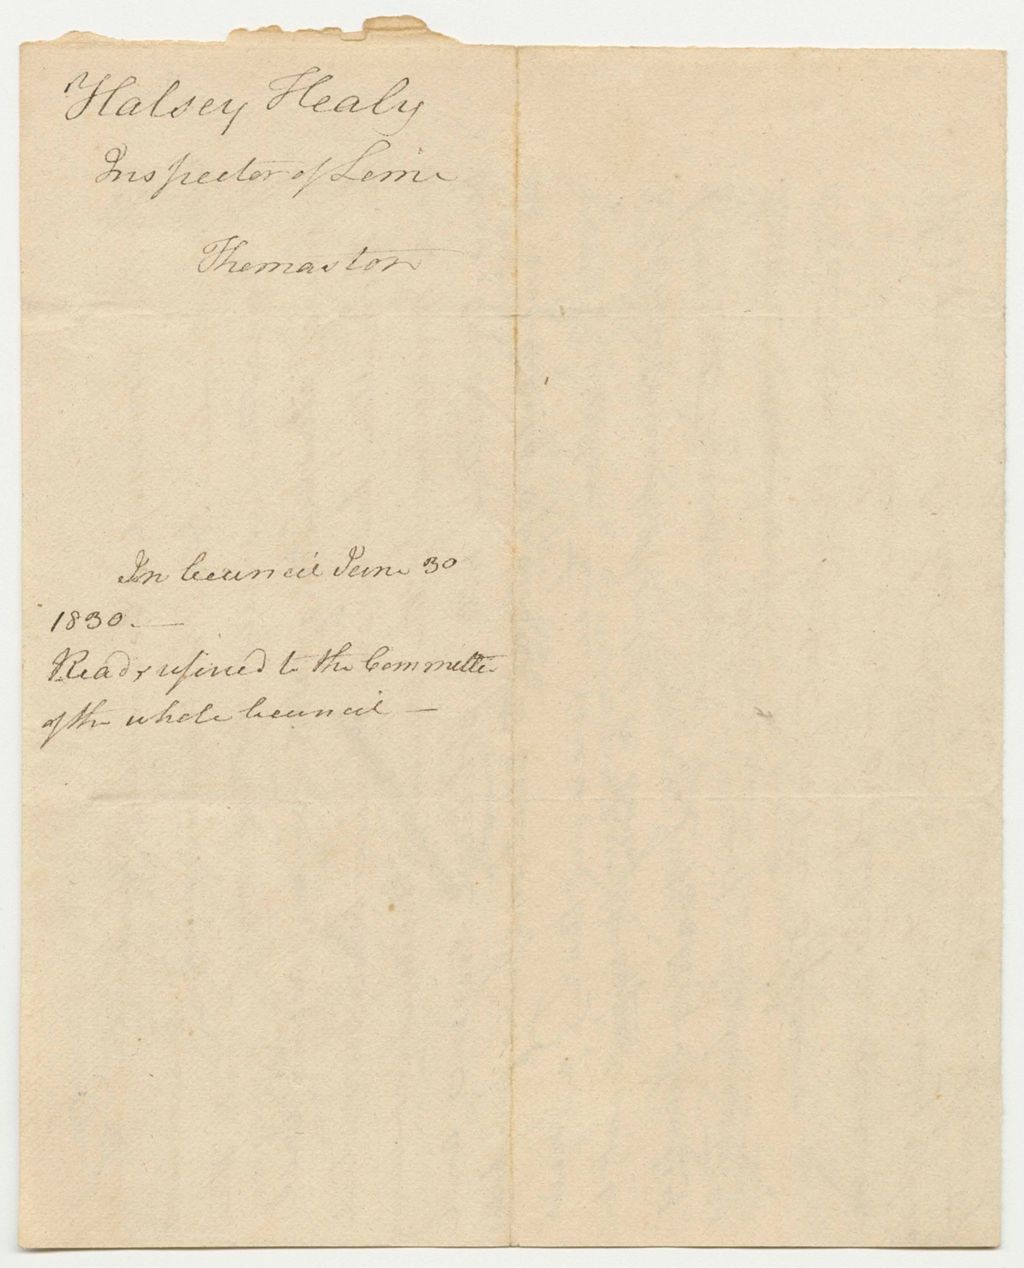 Halsey Healy
Inspector of Lime
Thomaston
In Council June 30
1830. —
Read & refered to the Committe
of the whole Council —